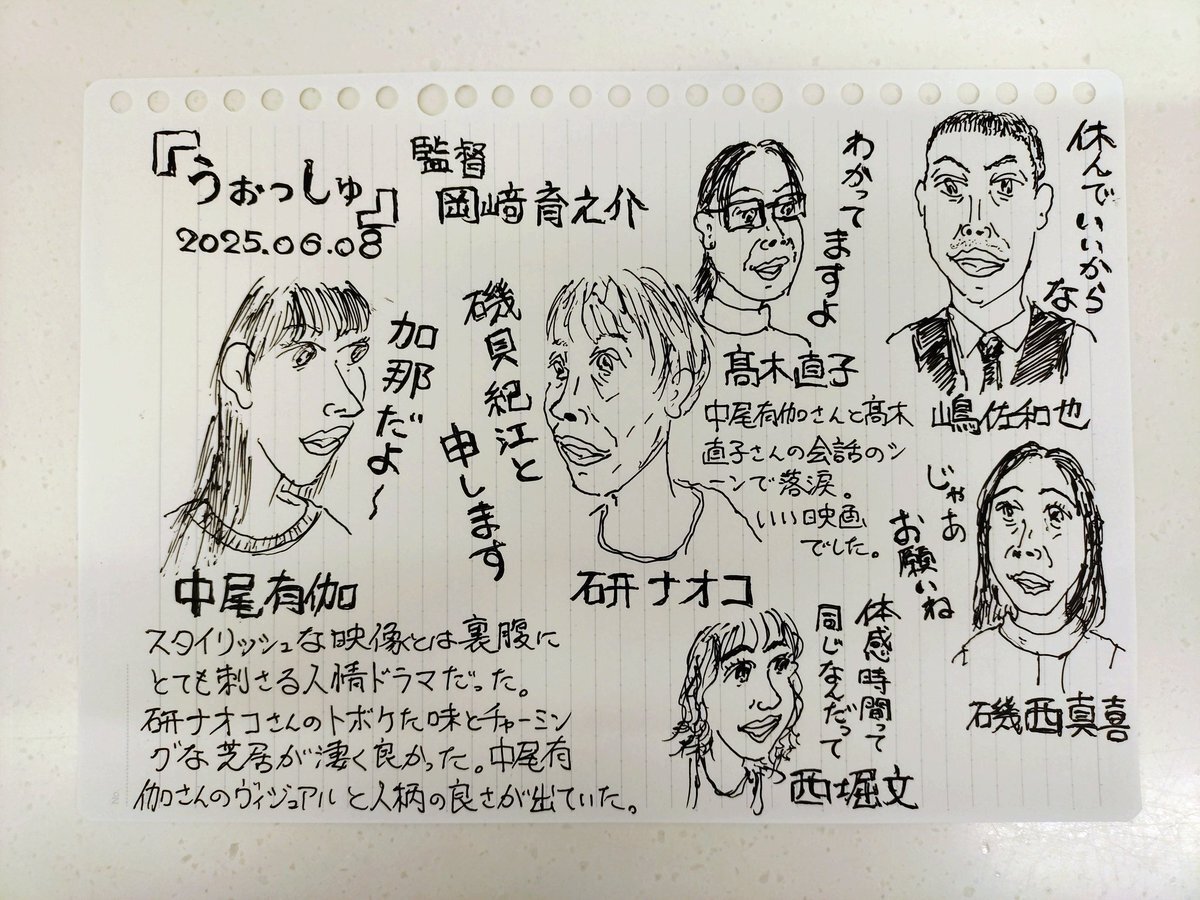 『うぉっしゅ』
2025.06.08
監督
岡﨑育之介
加那だよ～
中尾有伽
磯貝紀江と
申します
研ナオコ
わかってますよ
髙木直子
休んでいいから
な
嶋佐和也
中尾有伽さんと髙木
直子さんの会話のシ
ーンで落涙。
いい映画
でした。
じゃあ
お願いね
磯西真喜
体感時間って
同じなんだって
西堀文
スタイリッシュな映像とは裏腹に
とても刺さる人情ドラマだった。
研ナオコさんのトボケた味とチャーミン
グな芝居が凄く良かった。中尾有
伽さんのヴィジュアルと人柄の良さが出ていた。